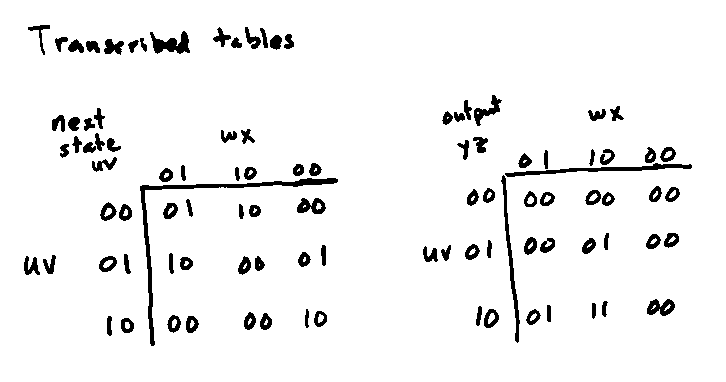 Transcribed tables
next state uv wx
01 10 00
00 01 10 00
uv 01 10 00 01
10 00 00 10
output yz wx
01 10 00
00 00 00 00
uv 01 00 01 00
10 01 11 00